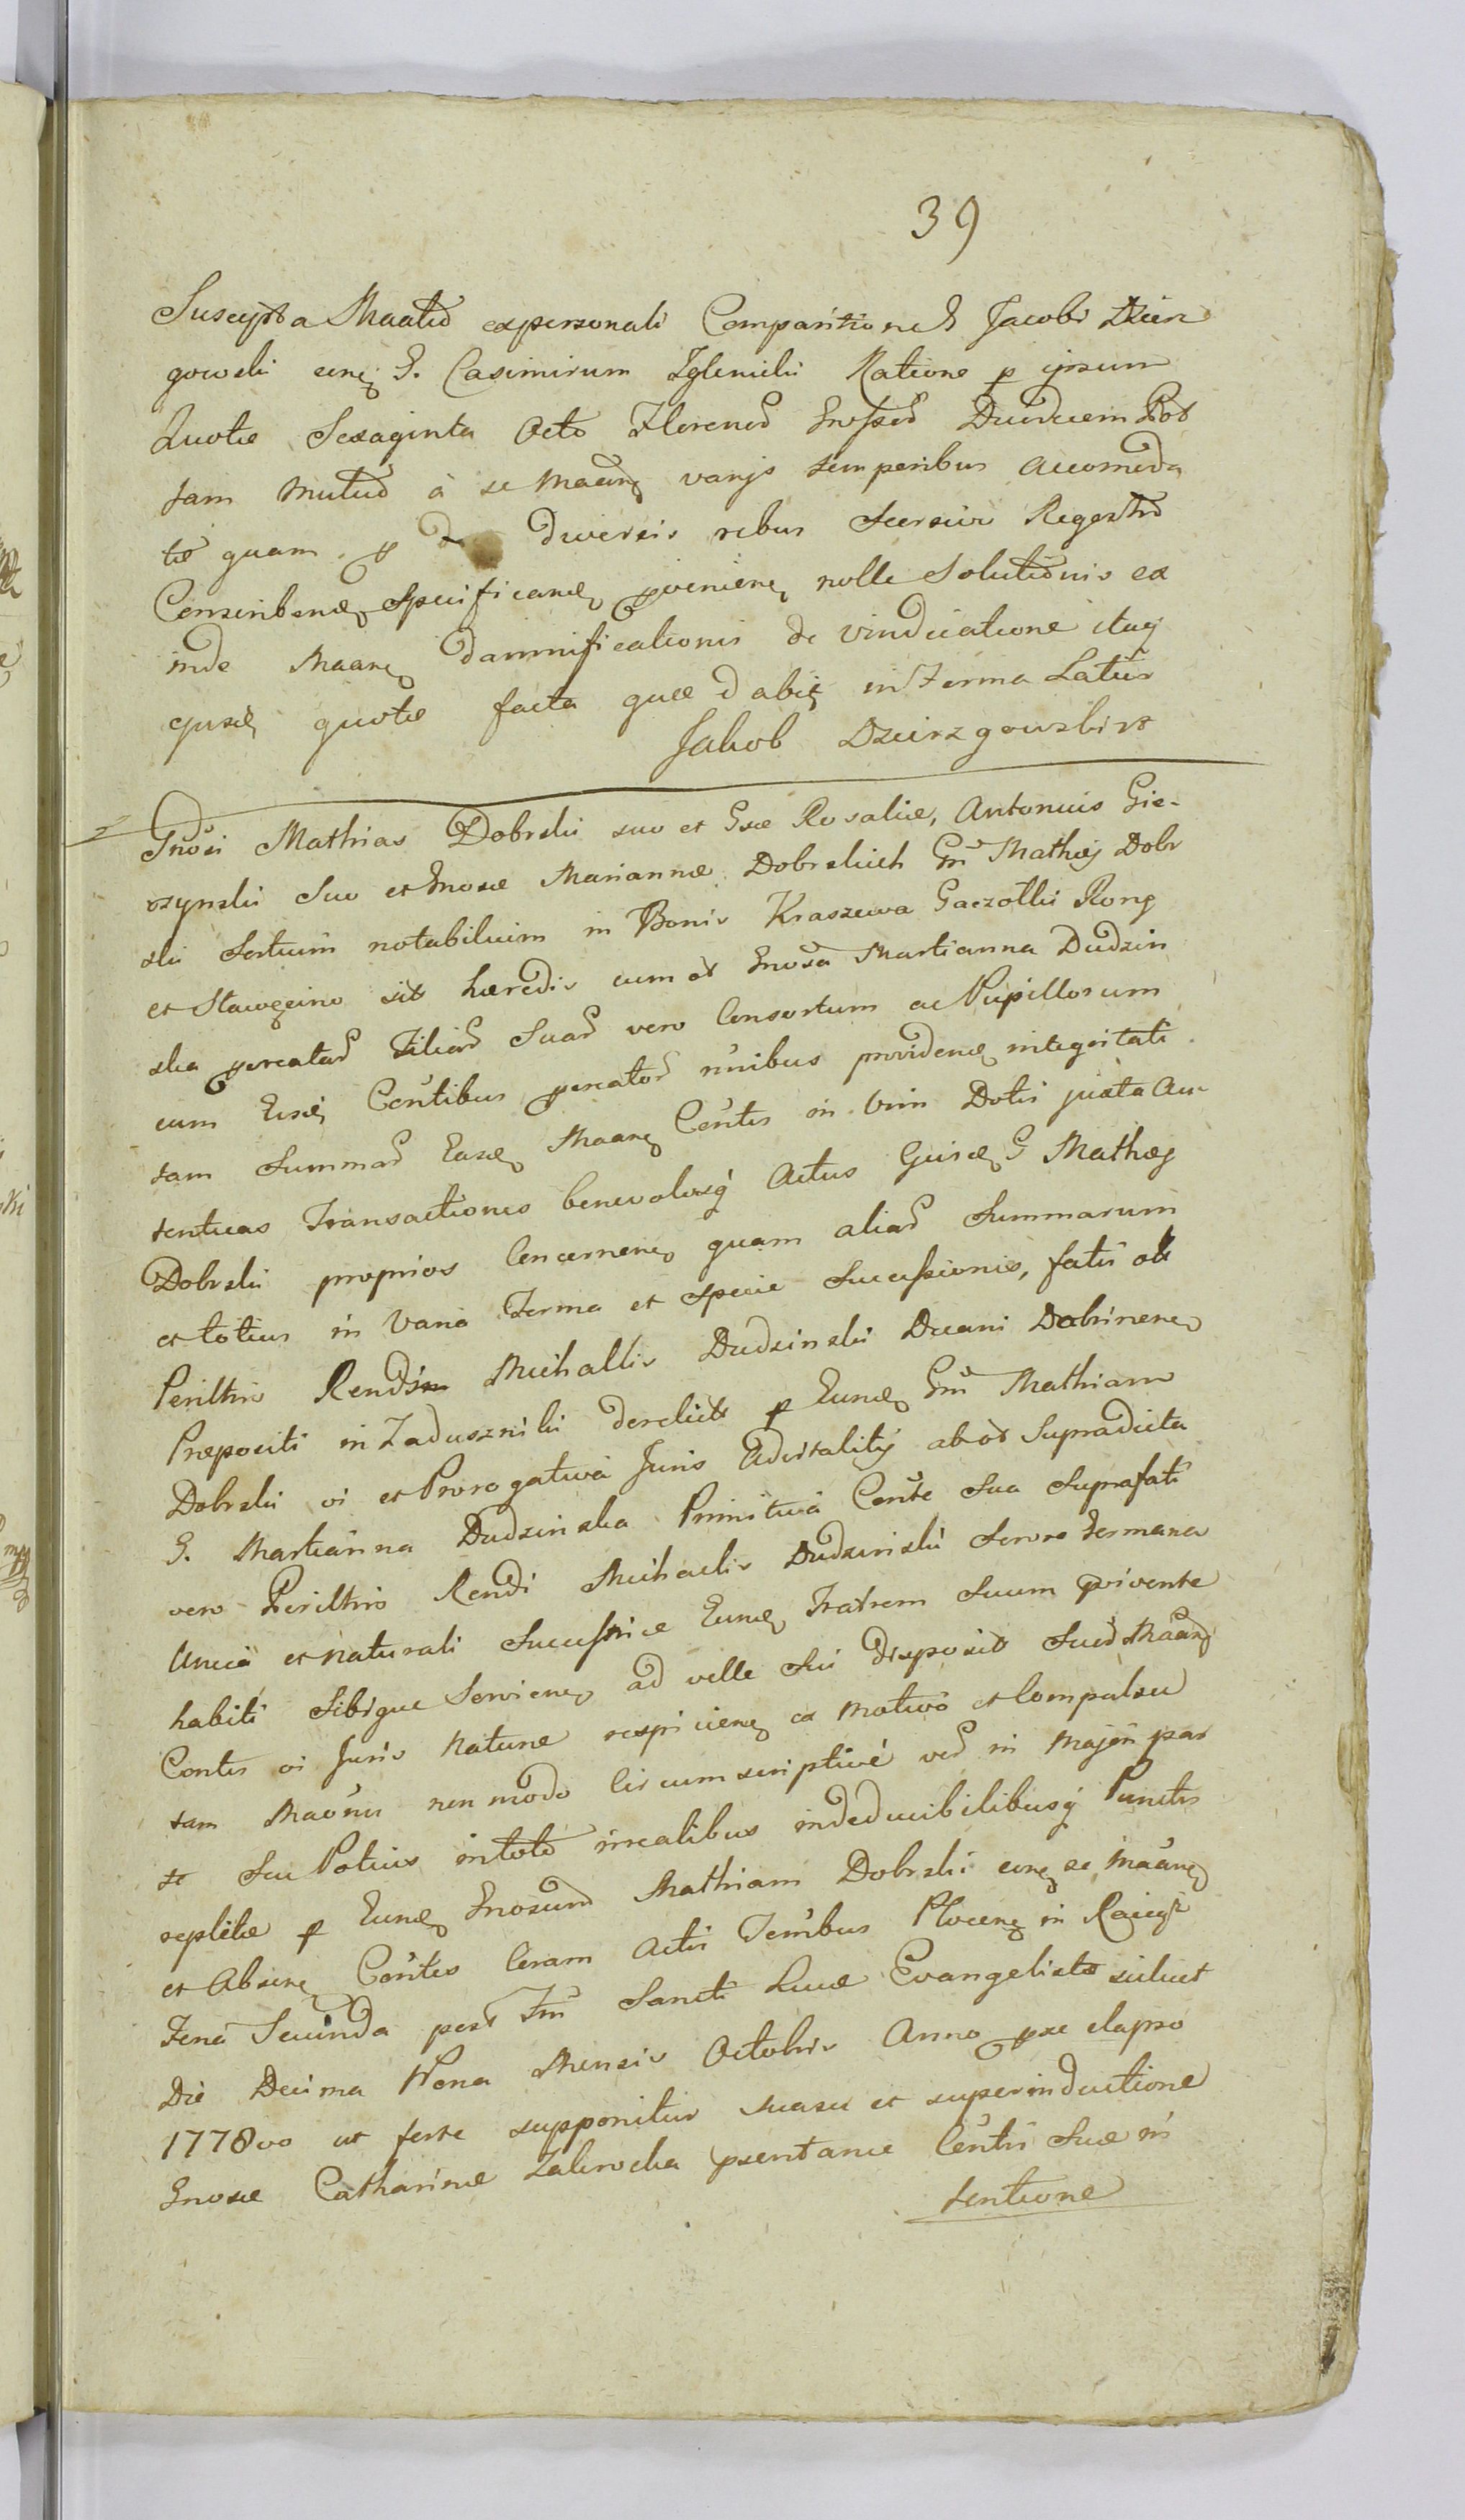 39
Suscepta Maatio expersonali Comparitione G Jacobi Dzierz
gowski cune G. Casimirum Zglenicki Ratione p ipsum
Quotae Sexaginta Octo Florenos Grossos Duodecim Pol
tam mutuo à se Maane varijs temporibus accomoda
tae quam p de diversis rebus seorsive Regestro
Conscribene specificane pveniene nolle Solutionis ex
inde Maane damnificationis de vindicatione itaq
ejusde quotae facta quae d abit in Forma Latius
Jakob Dzierzgowski
Gnosi Mathias Dobrski suo et Gsae Rosaliae, Antonius Gie-
rzynski Suo et Gnosae Mariannae Dobrskich Gni Mathaej Dobr
ski Sortium notabilium in Bonis Kraszewa Gaczołki Rong
et Stawęcino sit haeredis cum et Gnosa Martianna Dudzin
ska procatas Filias Suas vero Consortum ac Pupillorum
cum Eisde Contibus procator nnibus providene integritati
tam Summas Easde Maane Contes in Vim Dotis juxta Au-
tenticas Transactiones benevolosq Actus Gnisde G Mathaej
Dobrski proprios Concernene quam alias Summarum
et totius in Varia Forma et specie Successionis, fatis ob
Perilltris Rendi Michallis Dudzinski Decani Dobrinene
Praepositi in Zaduszniki derelict p Eunde Gni Mathiam
Dobrski vi et Prorogativa Juris Advitalitij ab et Supradicta
G. Martianna Dudzinska Primitiva Conte Sua Suprafati
vero Perilltris Rendi Michaelis Dudzinski Sorore Germana
Unica et naturali Successrice Eunde Fratrem Suum previvente
habiti Sibique Serviene ad velle Sui disposit Sues Maand
Contes vi Juris Naturae respiciene ex motivo et Compulsu
tam Maonis non modo Circumscriptive ved in Majori par
te Seu Potius in toto irrealibus indeducibilibusq Punctis
repletae p Eunde Gnosum Mathiam Dobrski cune se Maane
et Absene Contes Coram Actis Temibus Plocene in Raciąż
Feria Secunda post Fm Sancti Lucae Evangelistae scilicet
Die Decima Nona Mensis Octobris Anno prae elapso
1778vo ut forte supponitur suasu et superinductione
Gnosae Catharinae Zakrocka praesentanae Contis Suae in
tentione